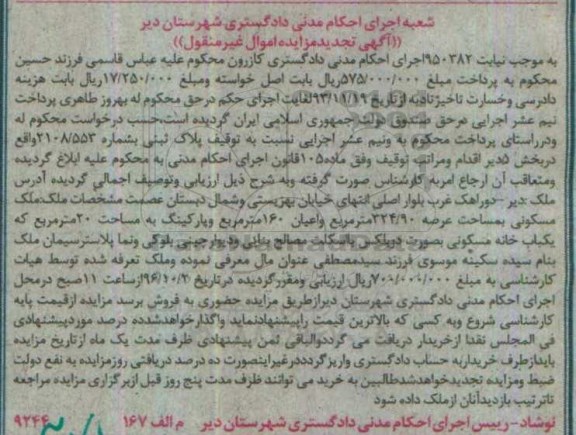 شعبه اجرای احکام مدنی دادگستری شهرستان دیر
((آگهی تجدیدمزایده اموال غیرمنقول))
به موجب نیابت ۹۵۰۳۸۲اجرای احکام مدنی دادگستری کازرون محکوم علیه عباس قاسمی فرزند حسین
محکوم به پرداخت مبلغ ۵۷۵/۰۰۰/۰۰۰ریال بابت اصل خواسته ومبلغ ۱۷/۲۵۰/۰۰۰ریال بابت هزینه
دادرسی وخسارت تاخیرتادیه ازتاریخ ۹۳/۱۱/۱۹لغایت اجرای حکم درحق محکوم له بهروز طاهری پرداخت
نیم عشر اجرایی درحق صندوق دولت جمهوری اسلامی ایران گردیده است،حسب درخواست محکوم له
ودرراستای پرداخت محکوم به ونیم عشر اجرایی نسبت به توقیف پلاک ثبتی بشماره ۲۱۰۸/۵۵۳واقع
دربخش ۵دیر اقدام ومراتب توقیف وفق ماده۱۰۵قانون اجرای احکام مدنی به محکوم علیه ابلاغ گردیده
ومتعاقب آن ارجاع امربه کارشناس صورت گرفته وبه شرح ذیل ارزیابی وتوصیف اجمالی گردیده آدرس
ملک :دیر -دوراهک غرب بلوار اصلی انتهای خیابان بهزیستی وشمال دبستان عصمت مشخصات ملک:ملک
مسکونی بمساحت عرصه ۳۲۴/۹۰مترمربع واعیان ۱۶۰مترمربع وپارکینگ به مساحت ۲۰مترمربع که
یکباب خانه مسکونی بصورت دوبلکس بااسکلت مصالح بنایی ودیوارچینی بلوکی ونما پلاسترسیمان ملک
بنام سیده سکینه موسوی فرزند سیدمصطفی عنوان مال معرفی نموده وملک تعرفه شده توسط هیات
کارشناسی به مبلغ ۷۰۰/۰۰۰/۰۰۰ریال ارزیابی ومقررگردیده درتاریخ ۹۶/۱۰/۲ازساعت ۱۱صبح درمحل
اجرای احکام مدنی دادگستری شهرستان دیرازطریق مزایده حضوری به فروش برسد مزایده ازقیمت پایه
کارشناسی شروع وبه کسی که بالاترین قیمت راپیشنهادنماید واگذارخواهدشدده درصد موردپیشنهادی
فی المجلس نقدا ازخریدار دریافت می گرددوالباقی ثمن پیشنهادی ظرف مدت یک ماه ازتاریخ مزایده
بایدازطرف خریداربه حساب دادگستری واریزگردددرغیراینصورت ده درصد دریافتی روزمزایده به نفع دولت
ضبط ومزایده تجدیدخواهدشدطالبین به خرید می توانند ظرف مدت پنج روز قبل ازبرگزاری مزایده مراجعه
تاترتیب بازدیدآنان ازملک داده شود
نوشاد-رییس اجرای احکام مدنی دادگستری شهرستان دیر م الف ۱۶۷ ۹۲۴۴